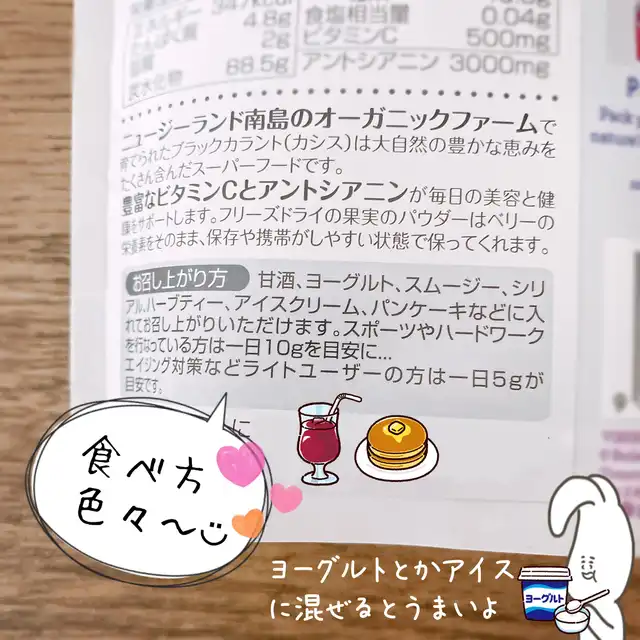 347kcal
4.8g
2g
68.5g
炭水化物
食塩相当量 0.04g
ビタミンC 500mg
アントシアニン 3000mg
ニュージーランド南島のオーガニックファームで
育てられたブラックカラント(カシス)は大自然の豊かな恵みを
たくさん含んだスーパーフードです。
豊富なビタミンCとアントシアニンが毎日の美容と健
康をサポートします。フリーズドライの果実のパウダーはベリーの
栄養素をそのまま、保存や携帯がしやすい状態で保ってくれます。
お召し上がり方 甘酒、ヨーグルト、スムージー、シリ
アル、ハーブティー、アイスクリーム、パンケーキなどに入
れてお召し上がりいただけます。スポーツやハードワーク
を行なっている方は一日10gを目安に...
エイジング対策などライトユーザーの方は一日5gが
目安です。
に
食べ方
色々〜
ヨーグルトとかアイス
に混ぜるとうまいよ
ヨーグルト